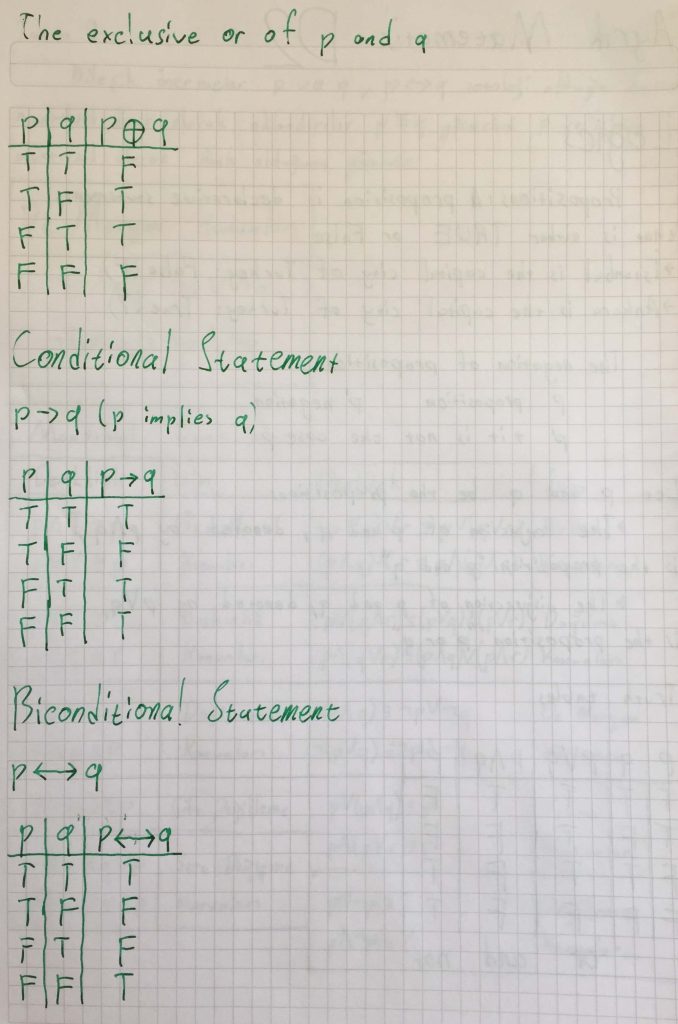 The exclusive or of p and q
p q p⊕q
T T F
T F T
F T T
F F F
Conditional Statement
p→q (p implies q)
p q p→q
T T T
T F F
F T T
F F T
Biconditional Statement
p↔q
p q p↔q
T T T
T F F
F T F
F F T